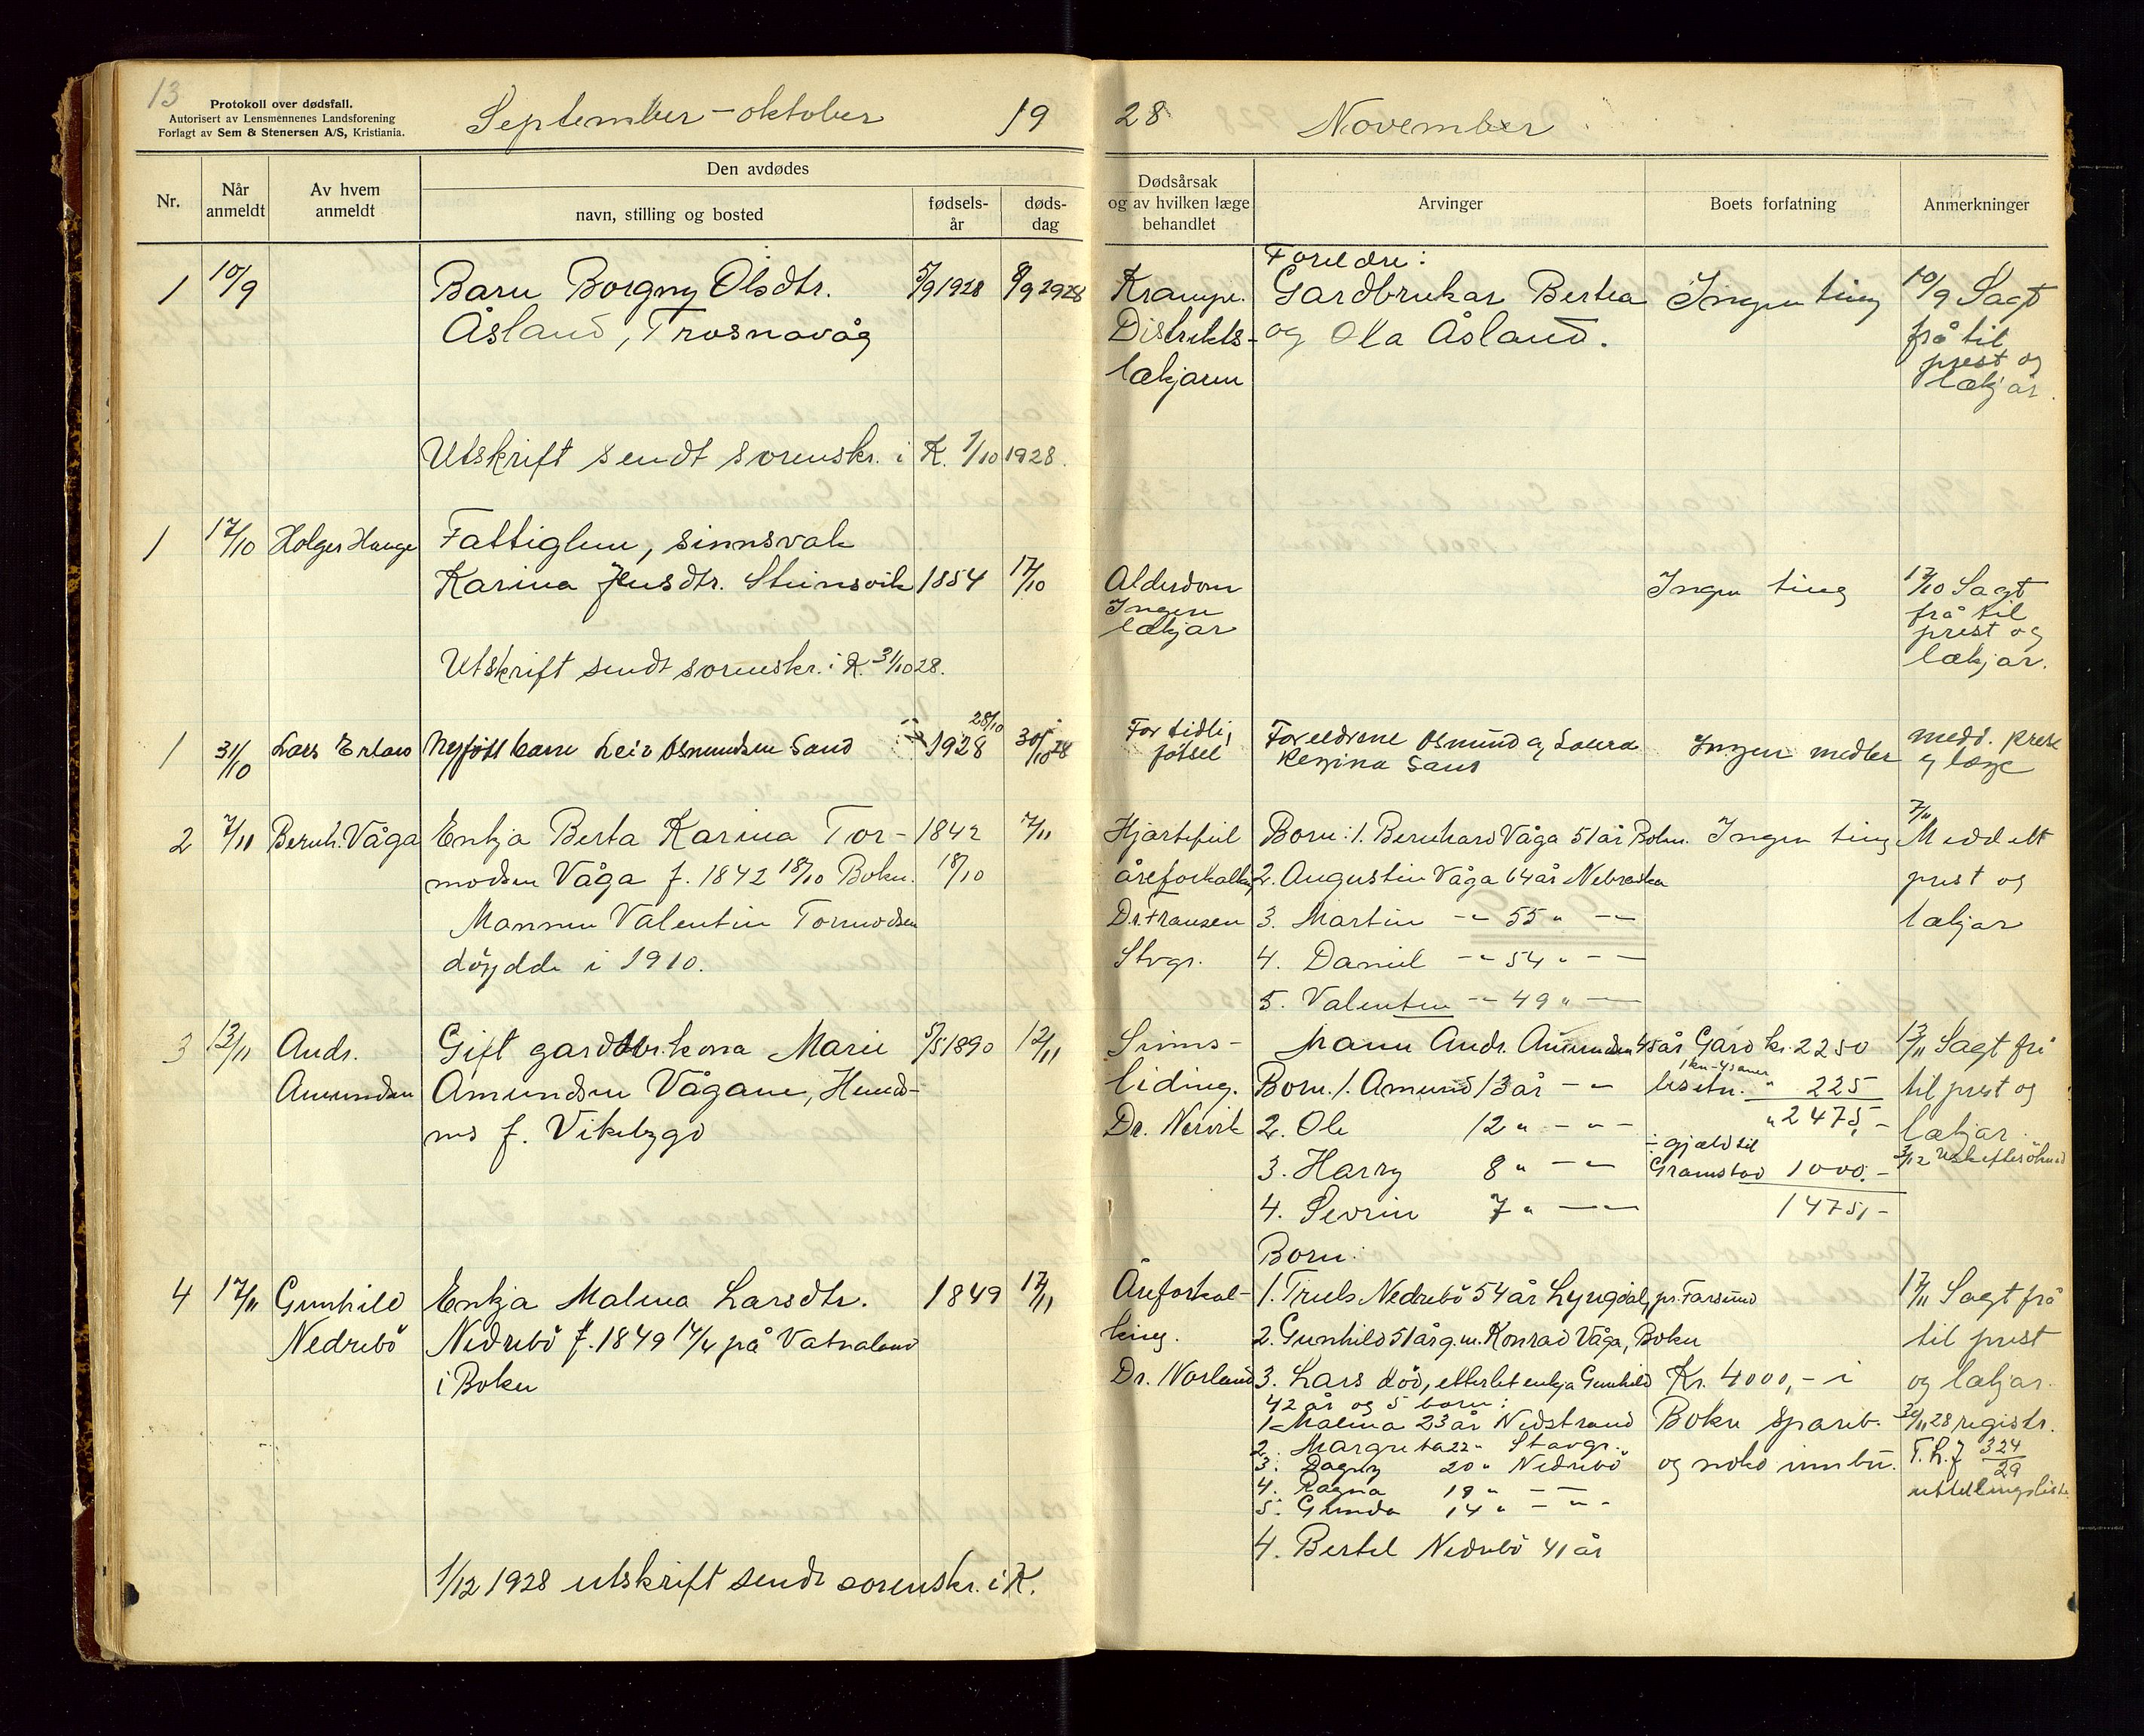 13
Protokoll over dødsfall.
Autorisert av Lensmennenes Landsforening
Forlagt av Sem & Stenersen A/S, Kristiania.
September - oktober 19
28 November
Nr.
Når anmeldt
Av hvem anmeldt
Den avdødes
navn, stilling og bosted
fødsels-
år
døds-
dag
Dødsårsak
og av hvilken læge
behandlet
Arvinger
Boets forfatning
Anmerkninger
1 10/9 Barn Borgny Olsdtr. 5/9 1928 8/9 1928
Åsland, Trosnavåg
Krampe.
Distrikts-
lækjaren
Foreldre:
Gardbrukar Berta
og Ola Åsland.
Ingen ting
10/9 Sagt
frå til
prest og
lækjar.
Utskrift sendt sorenskr. i K. 1/10 1928.
1 17/10 Holger Hauge Fattiglem, sinnsvak
Karina Jensdtr. Steinsvik 1854 17/10
Alderdom
Ingen
lækjar
Ingen ting
17/10 Sagt
frå til
prest og
lækjar.
Utskrift sendt sorenskr. i K. 31/10 28.
1 31/10 Lars Erland Nyfött barn Leiv Osmundsen Sand 28/10 1928 30/10 28
For tidlig
fötsel
Foreldrene Osmund og Laura
Regina Sand
Ingen medler
medd. prest
og læge
2 7/11 Bernh. Våga Enkja Berta Karina Tor- 1842 7/11
modsen Våga f. 1842 18/10 Bokn. 18/10
Mannen Valentin Tormodsen
döydde i 1910.
Hjartefeil
åreforkalking
Dr. Fransen
Stvgr.
Born: 1. Bernhard Våga 51 år Bokn.
2. Augustin Våga 64 år Nebraska
3. Martin -"- 55 " -"-
4. Daniel -"- 54 " -"-
5. Valentin -"- 49 " -"-
Ingen ting
7/11
Meddelt
prest og
lækjar
3 13/11 Andr. Gift gardbr.kona Marie 5/5 1890 12/11
Amundsen Amundsen Vågane, Hinds-
nes f. Vikebygd
Sinns-
liding.
Dr. Nervik
Mann Andr. Amundsen 45 år
Born. 1. Amund 13 år -"-
2. Ole 12 " -"-
3. Harry 8 " -"-
4. Sevrin 7 " -"-
Gard kr. 2250
1 ku - 4 sauer
busetn. " 225
" 2475,-
÷ gjæld til
Gramstad 1000.-
1475,-
13/11 Sagt frå
til prest og
lækjar
3/12
4 17/11 Gunhild Enkja Malena Larsdtr. 1849 17/11
Nedrebö Nedrebö f. 1849 14/4 på Vatnaland
i Bokn
Åreforkal-
king.
Dr. Norland
Born:
1. Truls Nedrebö 54 år Lyngdal, pr. Farsund
2. Gunhild 51 år g.m. Konrad Våga, Bokn
3. Lars död, etterlet enkja Gunhild
42 år og 5 born:
1. Malena 23 år Nedstrand
2. Margreta 22 " Stavgr.
3. Dagny 20 " Nedrebö
4. Ragna 19 " -"-
5. Gunda 14 " -"-
4. Bertel Nedrebö 41 år
Kr. 4000,- i
Bokn sparib.
og noko innbu.
17/11 Sagt frå
til prest
og lækjar.
30/11 28 registr.
T. L. f 324/29
utdelingsliste
1/12 1928 utskrift sendt sorenskr. i K.